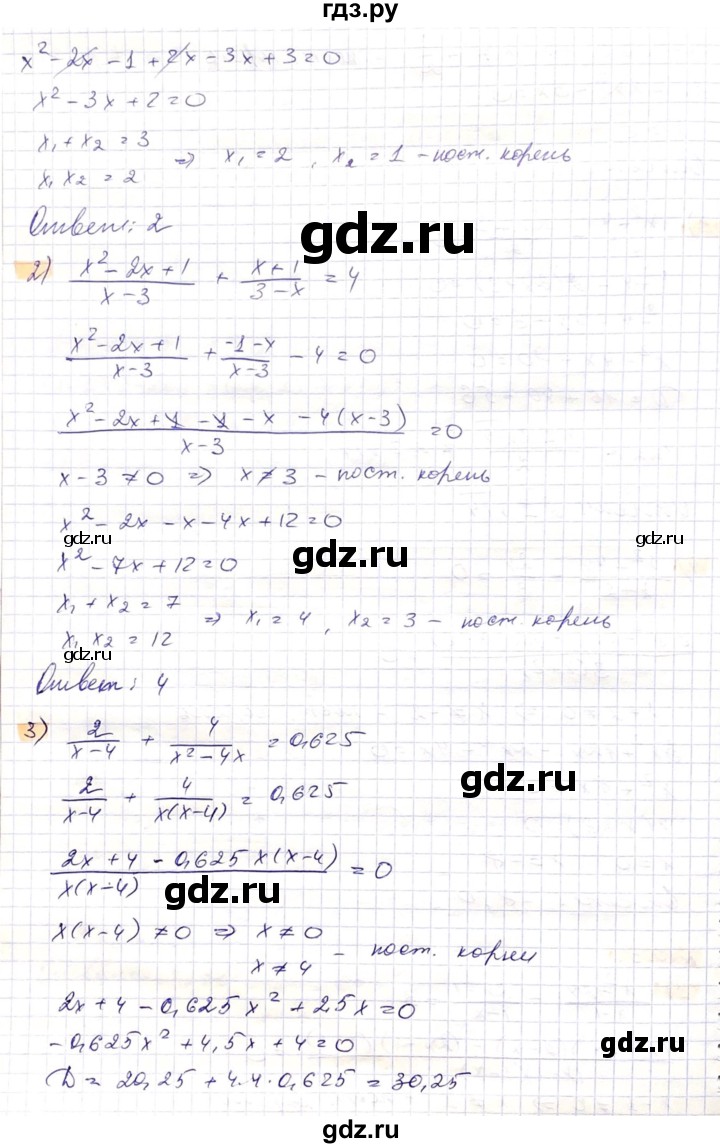 гдз.ру
x² - 2x - 1 + 2x - 3x + 3 = 0
x² - 3x + 2 = 0
x₁ + x₂ = 3
x₁ x₂ = 2 ⇒ x₁ = 2, x₂ = 1 - пост. корень
Ответ: 2
gdz.ru
2) (x² - 2x + 1)/(x - 3) + (x + 1)/(3 - x) = 4
(x² - 2x + 1)/(x - 3) + (-1 - x)/(x - 3) - 4 = 0
(x² - 2x + 1 - 1 - x - 4(x - 3))/(x - 3) = 0
x - 3 ≠ 0 ⇒ x ≠ 3 - пост. корень
x² - 2x - x - 4x + 12 = 0
gdz.ru gdz.ru
gdz.ru
x² - 7x + 12 = 0
x₁ + x₂ = 7
x₁ x₂ = 12 ⇒ x₁ = 4, x₂ = 3 - пост. корень
gdz.ru
Ответ: 4
3) 2/(x - 4) + 4/(x² - 4x) = 0,625
2/(x - 4) + 4/(x(x - 4)) = 0,625
gdz.ru
(2x + 4 - 0,625x(x - 4))/(x(x - 4)) = 0
gdz.ru
x(x - 4) ≠ 0 ⇒ x ≠ 0
x ≠ 4 - пост. корни
2x + 4 - 0,625x² + 2,5x = 0
gdz.ru gdz.ru
-0,625x² + 4,5x + 4 = 0
D = 20,25 + 4·4·0,625 = 30,25
gdz.ru